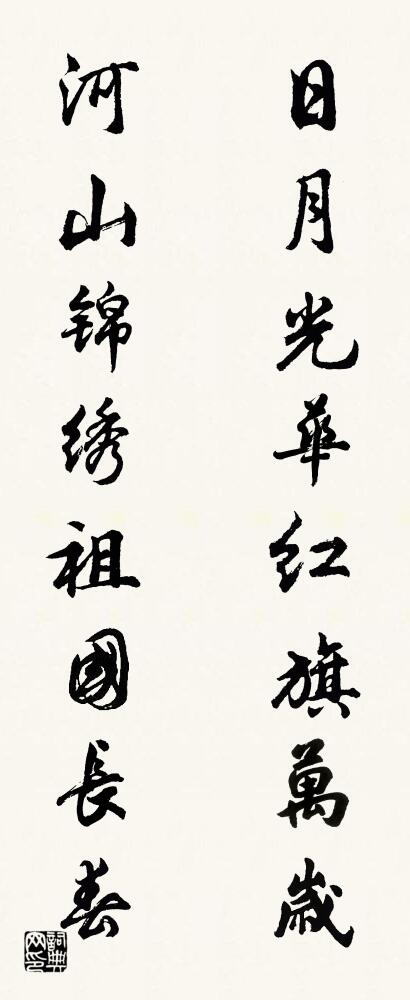 日月光華红旗萬歲
河山锦绣祖國長春
詞典网印